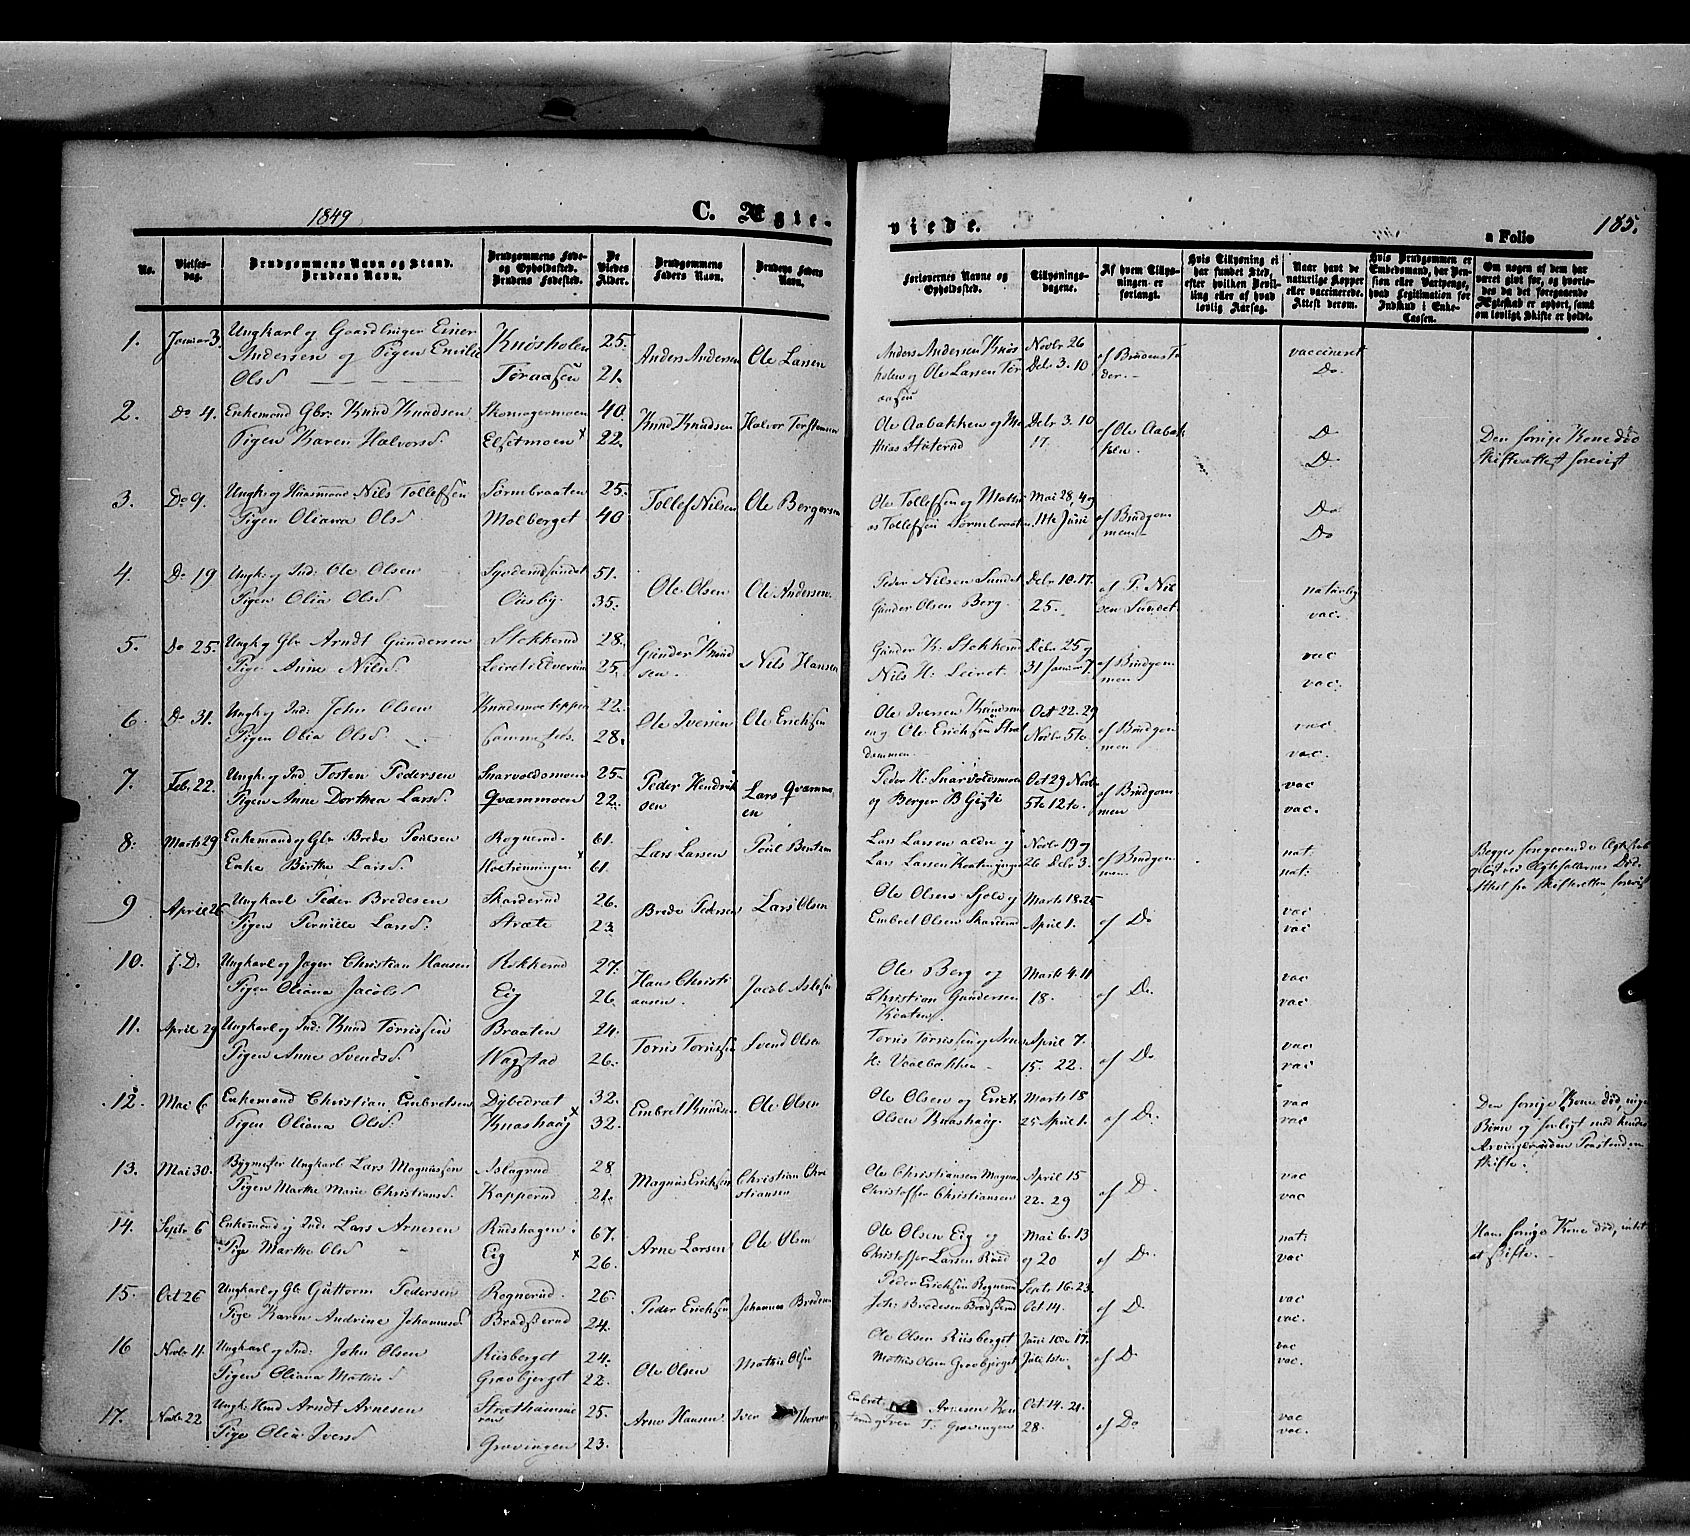 1849
C. Ægte-
viede.
a Folio
185.
No.
Vielses-
dag.
Brudgommens Navn og Stand.
Brudens Navn.
Brudgommens Føde-
og Opholdssted.
Brudens Fødested.
De
Viedes
Alder.
Brudgommens
Faders Navn.
Brudens Faders
Navn.
Forlovernes Navne og
Opholdssted.
Tillysnings-
dagene.
Af hvem Tillys-
ningen er
forlangt.
Hvis Tillysning ei
har fundet Sted,
efter hvilken Bevil-
ling eller af hvad
lovlig Aarsag.
Naar havt de
naturlige Kopper
eller vaccinerede.
Attest derom.
Hvis Brudgommen er
Embedsmand, har Pen-
sion eller Vartpenge,
hvad Legitimation for
Indskud i Enke-
Cassen.
Om nogen af dem har
været givt før, og hvorle-
des da det foregaaende
Ægteskab er ophørt, samt
om lovligt Skifte er holdt.
1. Januar 3. Ungkarl og Gaardbruger Einer Knøsholen 25. Anders Andersen Ole Larsen Anders Andersen Knøs Novbr 26 af Brudens Fa vaccineret
Andersen og Pigen Emilie Olsd Tøraasen 21. holen og Ole Larsen Tør Debr 3. 10 der. Do
aasen
2. Do 4. Enkemand Gbr: Knud Knudsen Skomagermoen 40. Knud Knudsen Halvor Torstensen Ole Aabakken og Ma Debr 3. 10 af Ole Aabak D Den forrige Kone død
Pigen Karen Halvorsd. Elsetmoen x 22. thias Sluterud 17. ken. D. Skifteattest forevist
3. Do 9. Ungk. og Huusmand Nils Tollefsen Sørmbraaten 25. Tollef Nilsen Ole Bergersen Ole Tollefsen og Mathi Mai 28, 4 og af Brudgom Do
Pigen Oliana Olsd Molberget 40 as Tollefsen Sørmbraaten 11te Juni men Do
4. Do 19 Ungk. og Ind: Ole Olsen 51. Ole Olsen Ole Andersen. Peder Nilsen Sundet Debr 10. 17. af P. Nil naturlig
Pigen Olia Olsd. Ousby. 35. Gunder Olsen Berg. 25. sen Sundet. vac.
5. Do 25. Ungk og Gbr Arndt Gundersen Stekkerud 28. Gunder Knud Nils Hansen Gunder K: Stekkerud Debr 25 og af Brudgom vac
Pige Anne Nilsd. Leiret i Elverum 25. sen. Nils H: Leiret. 31 Januar 7. men vac.
6. Do 31. Ungk og Ind: John Olsen Knudsmoetoppen 22. Ole Iversen Ole Erichsen Ole Iversen Knudsmo Oct 22. 29 af Brudgom vac
Pigen Olia Olsd. 28. en og Ole Erichsen Stra Novbr 5te men. vac.
dammen.
7. Feb. 22. Ungk. og Ind Tosten Pedersen Snarvoldsmoen 25. Peder Hendrik Lars Qvammo Peder H: Snarvoldsmoen Oct 29 Novbr af Brudgom vac
Pigen Anne Dorthea Larsd. Qvammoen 22. sen en og Berger B Gjste 5te 12te. men vac.
8. Marts 29 Enkemand og Gbr Brede Poulsen Rognerud. 61. Lars Larsen Poul Bentsen Lars Larsen aldre og Novbr 19 og af Brudgom nat: Begges foregaaende Ægteskab
Enke Birthe Larsd. x 61. Lars Larsen 26 Debr 3. men. nat: opløst ved Ægtefællernes Død.
Attest fra Skifteretten forevist
9 April 26 Ungkarl Peder Bredesen Skarderud 26. Brede Pedersen Lars Olsen Ole Olsen Sjolie og Marts 18. 25 af Do vac
Pigen Pernille Larsd. Stræte 23. Embret Olsen Skarderud April 1. vac
10. f. D. Ungkarl og Jæger Christian Hansen Rokkerud 27. Hans Christi Jacob Aslesen Ole Berg og Marts 4. 11 af Do. vac
Pigen Oliana Jacobsd Eig 26. ansen. Christian Gundersen 18. vac
Kraten.
11. April 29 Ungkarl og Ind: Knud Torrissen Braaten 24. Torris Torrissen Svend Olsen Torris Torrissen og Arne April 7. af Do vac
Pigen Anne Svendsd. Wagstad 26. H: Vaalbakken 15. 22. vac
12. Mai 6 Enkemand Christian Embretsen Dybedrat 32. Embret Knudsen Ole Olsen Ole Olsen og Erict. Marts 18 af D. vac Den forrige Kone død, ingen
Pigen Oliana Olsd. Knashaug x 32. Olsen Knashaug 25 April 1. vac Børn og forligt med hendes
Arvinger uden Paastand om
Skifte.
13. Mai 30. Bygmester Ungkarl Lars Magnussen Aslagrud 28 Magnus Erichsen Christian Chri Ole Christiansen Magnus April 15 af D. vac
Pigen Marthe Marie Christiansd. Kopperud 24. stiansen Christoffer Christiansen 22. 29 vac
14. Septr 6 Enkemand og Inds: Lars Arnesen Rudshagen 67. Arne Larsen Ole Olsen Ole Olsen Eig og Mai 6. 13 af D. nat: Hans forrige Kone død, intet
Pige Marthe Olsd Eig x 26. Christoffer Larsen Ruud og 20 vac at skifte.
15. Oct 26 Ungkarl og Gb Guttorm Pedersen Rognerud. 26. Peder Erichsen Johannes Bredesen Peder Erichsen Rognerud Septr 16. 23. af D. vac
Pige Karen Andrine Johannesd Bradserud 24. Joh: Bredesen Bradserud Oct 14. vac.
16 Novbr 4. Ungkarl og Ind: John Olsen Riisberget 24. Ole Olsen Mathis Olsen Ole Olsen Riisberget Juni 10de 17. af D vac
Pigen Oliana Mathisd Gravbjerget 22. Mathis Olsen Gravbjerget Juli 1ste. vac.
17. Novbr 22 Ungk: Arndt Arnesen Strethamme 25. Arne Hansen Iver Thoresen Embret Arnesen Oct 14. 21. af Do vac
Pige Olia Iversd ren Gravingen 23. Gravingen 28. vac.